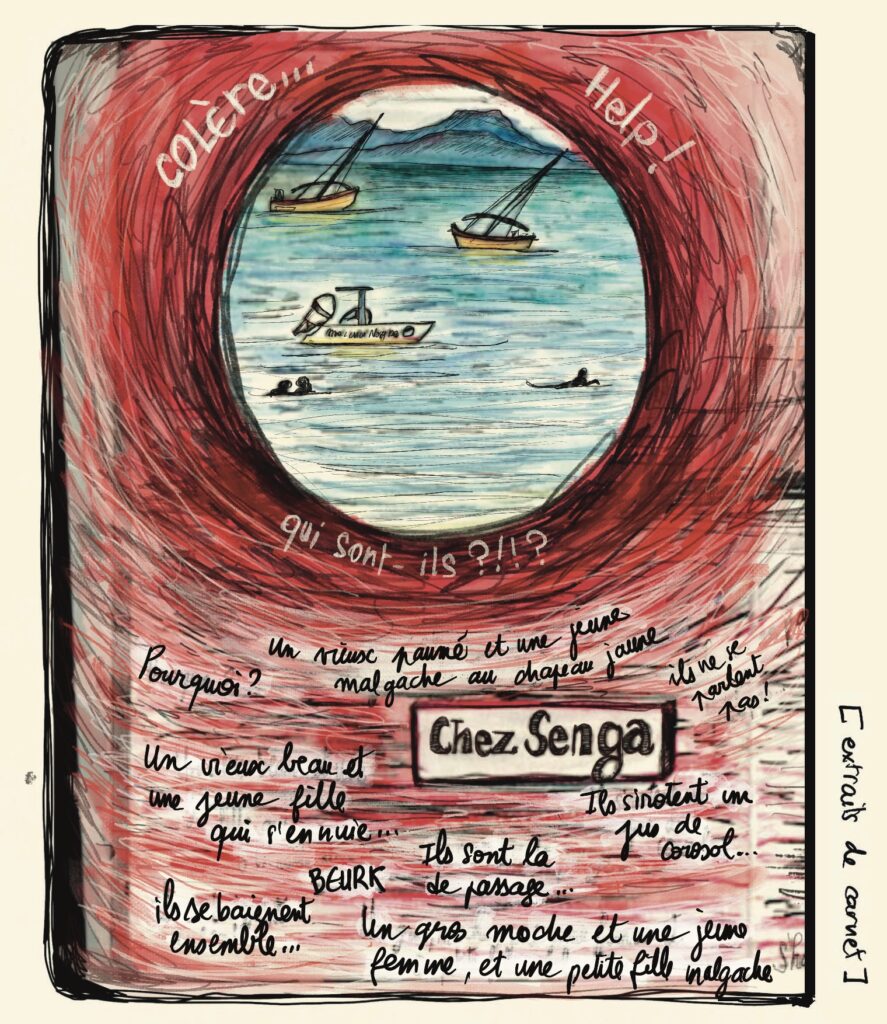 COLÈRE...
Help!
qui sont-ils ?!!?
Pourquoi?
Un vieux paumé et une jeune
malgache au chapeau jaune
ils ne se
parlent
pas!
Chez Senga
Un vieux beau et
une jeune fille
qui s'ennuie...
Ils sirotent un
jus de
corosol...
Ils sont là
de passage...
BEURK
ils se baignent
ensemble...
Un gros moche et une jeune
femme, et une petite fille malgache
[extraits de carnet]